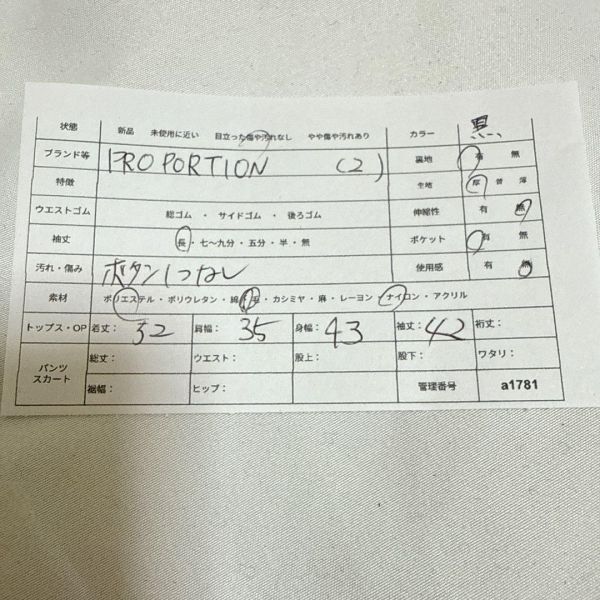 状態 新品 未使用に近い 目立った傷や汚れなし やや傷や汚れあり カラー 黒
ブランド等 PROPORTION (2) 裏地 有 無
特徴 生地 厚 普 薄
ウエストゴム 総ゴム ・ サイドゴム ・ 後ろゴム 伸縮性 有 無
袖丈 長・七〜九分・五分・半・無 ポケット 有 無
汚れ・傷み ボタン1つなし 使用感 有 無
素材 ポリエステル・ポリウレタン・綿・毛・カシミヤ・麻・レーヨン・ナイロン・アクリル
トップス・OP 着丈: 52 肩幅: 35 身幅: 43 袖丈: 42 裄丈:
パンツ スカート 総丈: ウエスト: 股上: 股下: ワタリ:
裾幅: ヒップ: 管理番号 a1781